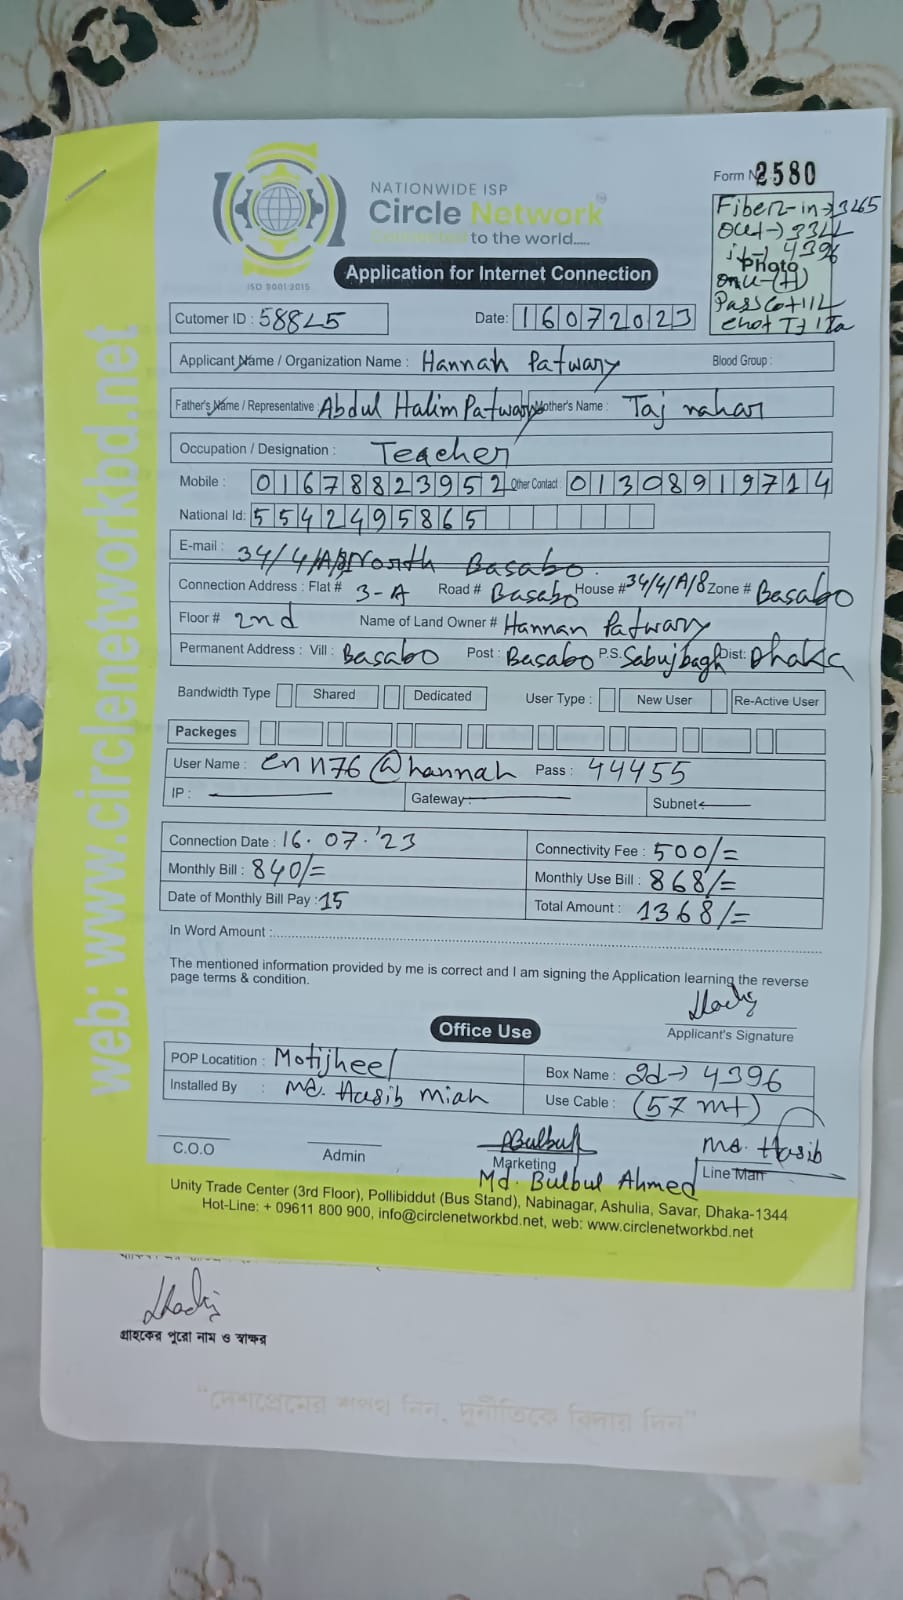 NATIONWIDE ISP
Circle Network
Connected to the world.....
ISO 9001:2015
Application for Internet Connection
Form No 2580
Fiber-in→3265
Out→
id→4396
Photo
Onu-(H)
Cutomer ID : 58825
Date: 16072023
Applicant Name / Organization Name : Hannah Patwary Blood Group :
Father's Name / Representative : Abdul Halim Patwary Mother's Name : Taj nahar
Occupation / Designation : Teacher
Mobile : 01678823952 Other Contact : 01308919714
National Id: 5542495865
E-mail : 34/4/A/8 North Basabo
Connection Address : Flat # 3-A Road # Basabo House # 34/4/A/8 Zone # Basabo
Floor # 2nd Name of Land Owner # Hannan Patwary
Permanent Address : Vill : Basabo Post : Basabo P.S. Sabujbagh Dist: Dhaka
Bandwidth Type Shared Dedicated User Type : New User Re-Active User
Packeges
User Name : cnn76@hannah Pass : 44455
IP : Gateway: Subnet
Connection Date : 16.07.'23 Connectivity Fee : 500/=
Monthly Bill : 840/= Monthly Use Bill : 868/=
Date of Monthly Bill Pay : 15 Total Amount : 1368/=
In Word Amount :
The mentioned information provided by me is correct and I am signing the Application learning the reverse
page terms & condition.
Applicant's Signature
Office Use
POP Locatition : Motijheel Box Name : 4396
Installed By : Md. Hasib Miah Use Cable : (57 mt)
Bulbul Md. Hasib
C.O.O Admin Marketing Line Man
Md. Bulbul Ahmed
Unity Trade Center (3rd Floor), Pollibiddut (Bus Stand), Nabinagar, Ashulia, Savar, Dhaka-1344
Hot-Line: + 09611 800 900, info@circlenetworkbd.net, web: www.circlenetworkbd.net
web: www.circlenetworkbd.net
গ্রাহকের পুরো নাম ও স্বাক্ষর
"দেশপ্রেমের শপথ নিন, দুর্নীতিকে বিদায় দিন"